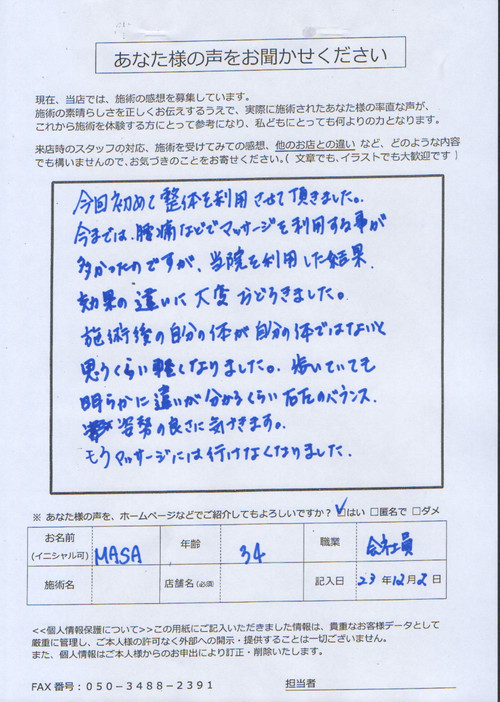 あなた様の声をお聞かせください
現在、当店では、施術の感想を募集しています。
施術の素晴らしさを正しくお伝えするうえで、実際に施術されたあなた様の率直な声が、
これから施術を体験する方にとって参考になり、私どもにとっても何よりの力となります。
来店時のスタッフの対応、施術を受けてみての感想、他のお店との違い など、どのような内容
でも構いませんので、お気づきのことをお寄せください。( 文章でも、イラストでも大歓迎です )
今回初めて整体を利用させて頂きました。
今までは、腰痛などでマッサージを利用する事が
多かったのですが、当院を利用した結果
効果の違いに大変おどろきました。
施術後の自分の体が自分の体ではないと
思うくらい軽くなりました。歩いていても
明らかに違いが分かるくらい右左のバランス
姿勢の良さに気付きます。
もうマッサージには行けなくなりました.
※ あなた様の声を、ホームページなどでご紹介してもよろしいですか? ☑はい □匿名で □ダメ
お名前 (イニシャル可) MASA 年齢 34 職業 会社員
施術名 店舗名 (必須) 記入日 23 年 12 月 2 日
<<個人情報保護について>>この用紙にご記入いただきました情報は、貴重なお客様データとして
厳重に管理し、ご本人様の許可なく外部への開示・提供することは一切ございません。
また、個人情報はご本人様からのお申出により訂正・削除いたします。
FAX 番号：050－3488－2391 担当者